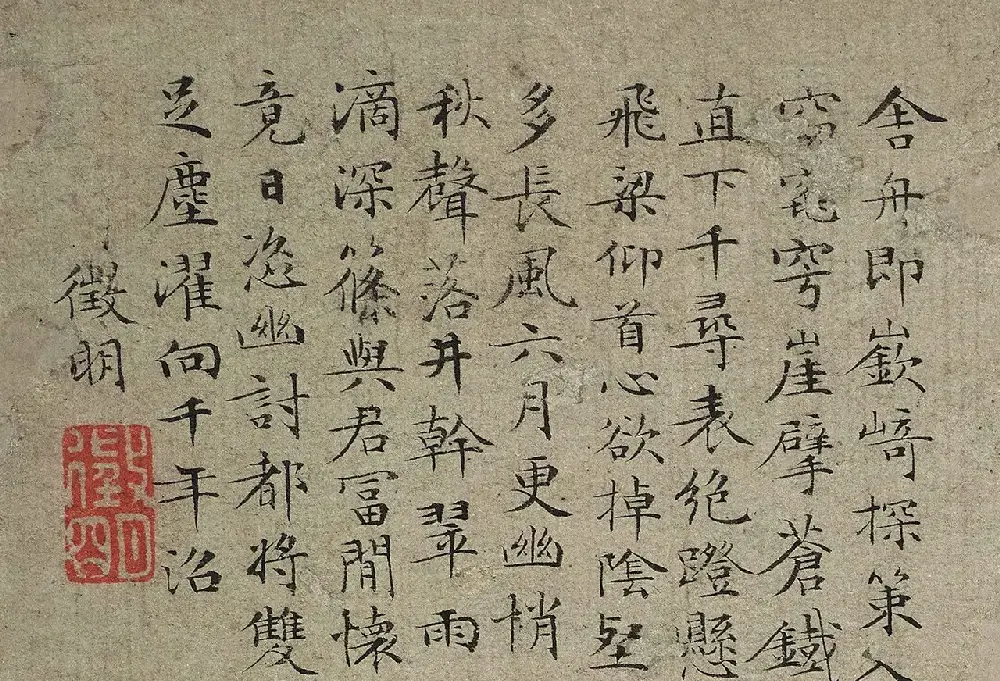 舍舟即嶔﨑探策入
窈窕穹崖擘蒼鐵
直下千尋表絶蹬懸
飛梁仰首心欲掉陰壑
多長風六月更幽悄
秋聲落井幹翠雨
滴深篠與君冨閒懷
竟日恣幽討都將雙
足塵濯向千年沼
徵明
徵明